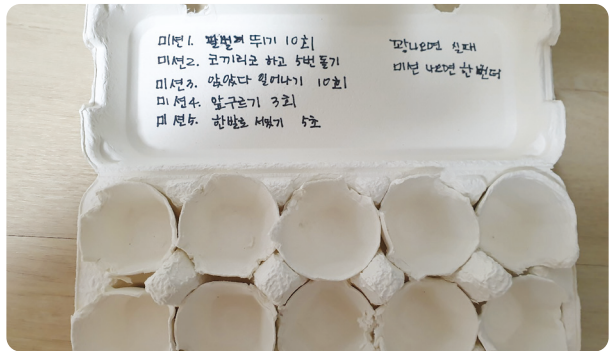 미션1. 팔벌려 뛰기 10회
미션2. 코끼리코 하고 5번 돌기
미션3. 앉았다 일어나기 10회
미션4. 앞구르기 3회
미션5. 한발로 서있기 5초
꽝나오면 실패
미션 나오면 한번더